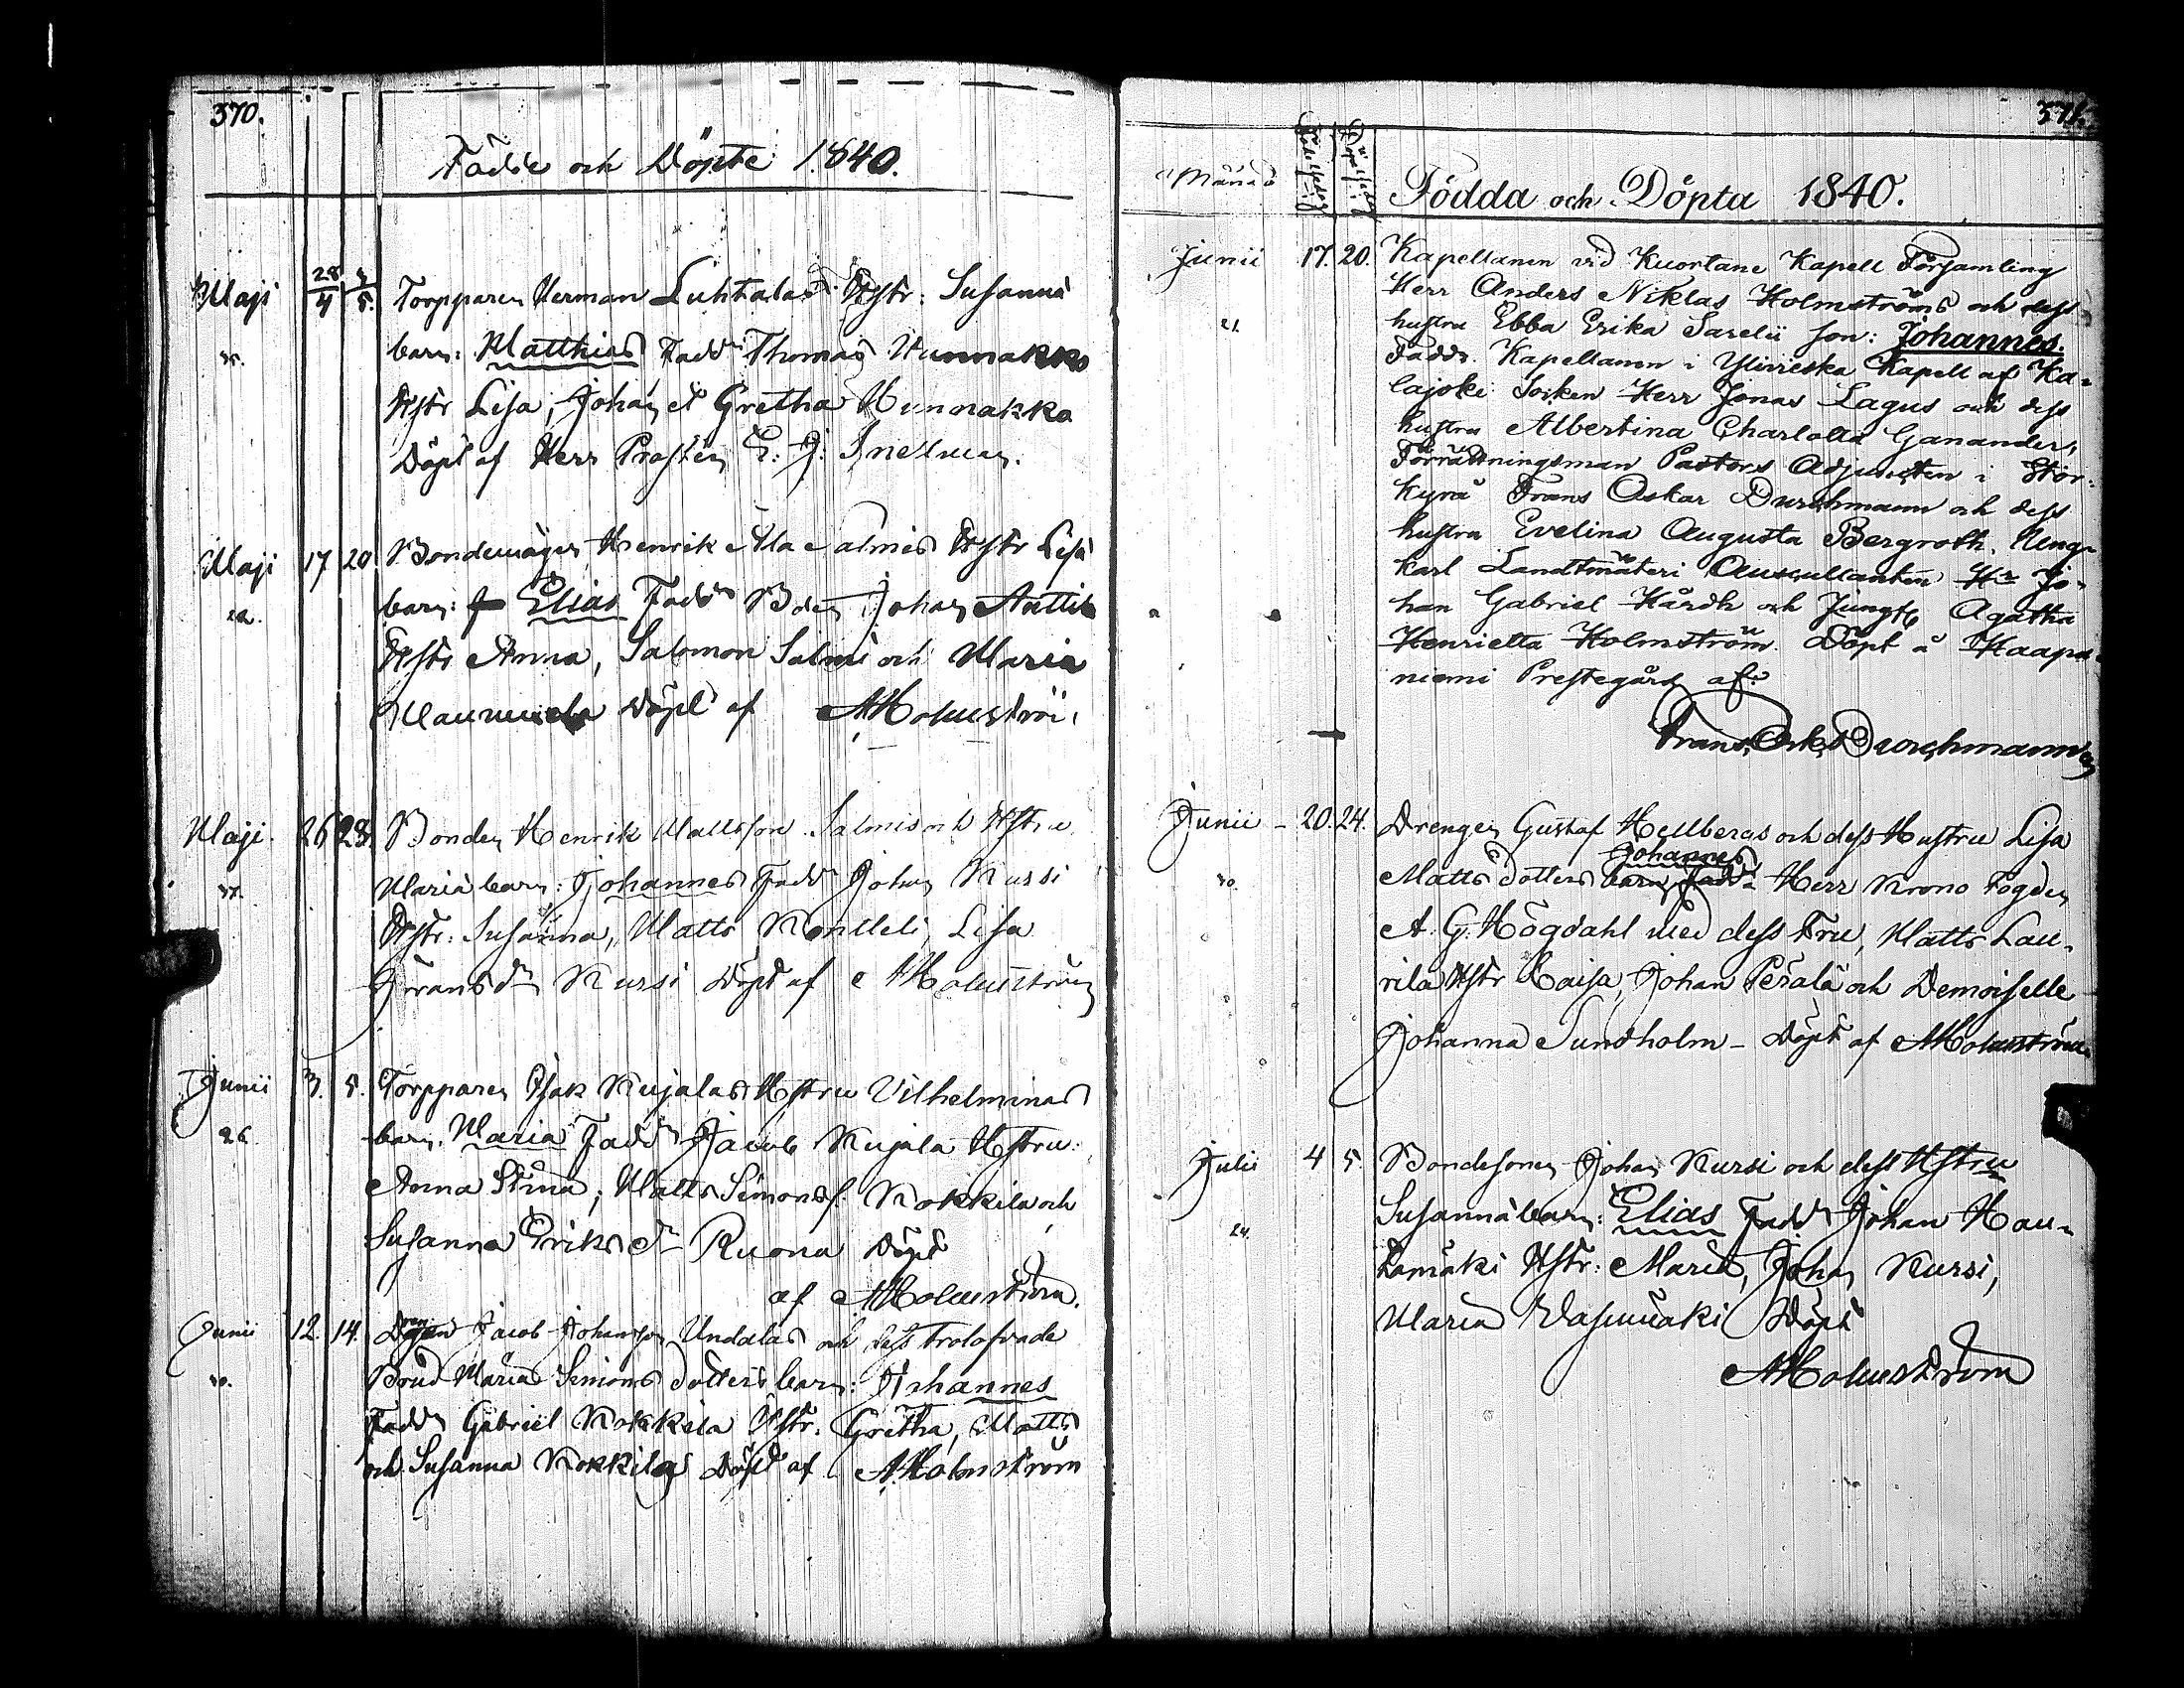 370.
Födde och Döpte 1840.
Maji 28/4 3/5. Torpparen Herman Luhtalas Hstr: Susanna
barn: Matthias Fadd: Thomas Hunnakko
Hstr Lisa, Johan et Gretha Hunnakko
Döpt af Herr Prosten E. J.
Maji 17 20 Bondemågen Henrik Ala Salmis Hstr Lisa
22. barn: Elias Fadd Bden Johan Anttila
Hstr Anna, Salomon Salmi och Maria
Döpt af AHolmström
Maji. 26 28. Bonden Henrik Mattsson Salmis och Hstru
Maria barn: Johannes Fadd Johan Kursi
Hstr: Susanna, Matts Lisa
dr Kursi Döpt af AHolmström
Junii 3. 5. Torpparen Isak Kujalas Hstru Vilhelminas
26. barn. Maria Fadd Jacob Kujala Hstru:
Anna Stina, Matts Simonsf. Kokkila och
Susanna Eriks dr Ruona Döpt
af AHolmström.
Junii 12. 14. Drengen Jacob Johansson Undalas och dess trolofvade
Brud Maria Simons dotters barn: Johannes
Fadd Gabriel Kokkila Hstr. Gretha, Matts
och Susanna Kokkila Döpt af AHolmström
371.
Månad Födelsedag Döpelsedag Födda och Döpta 1840.
Junii 17. 20. Kapellanen vid Kuortane Kapell Församling
Herr Anders Niklas Holmströms och dess
21. hustru Ebba Erika Sarelii son: Johannes.
Faddr. Kapellanen i Ylivieska Kapell af Ka-
lajoki Socken Herr Jonas Lagus och dess
hustru Albertina Charlotta Ganander,
Förrättningsman Pastors Adjuncten i Stor-
kyrå Frans Oskar Durchmann och dess
hustru Evelina Augusta Bergroth. Ung-
karl Landtmäteri Auscultanten Hr Jo-
han Gabriel Hårdh och Jungfr Agatha
Henrietta Holmström. Döpt å Kaapa-
niemi Prestegård af:
Frans Osk. Durchmann
Junii - 20. 24. Drengen Gustaf Hellbergs och dess Hustru Lisa
Johannes
30. Matts dotters barn Fadd: Herr Krono Fogden
A. G. Högdahl med dess Fru, Matts Lau-
rila Hstr Caisa, Johan Perälä och Demoiselle
Johanna Sundholm - Döpt af AHolmström
Julii 4 5. Bondesonen Johan Kursi och dess Hstru
24. Susanna barn: Elias Fadd Johan Hau-
tamäki Hstr: Maria, Johan Kursi,
Maria Wasumäki Döpt
AHolmström